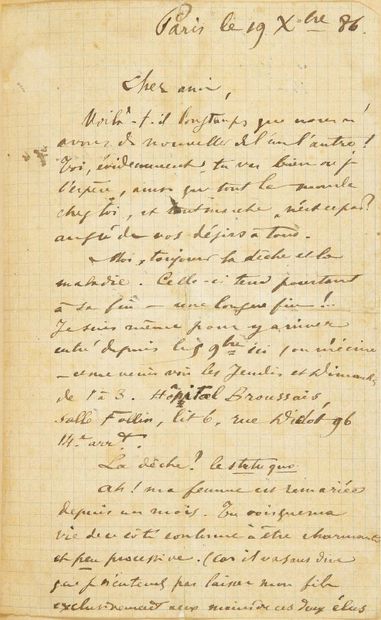 Paris le 19 Xbre 86.
Cher ami,
Voilà-t-il longtemps que nous n'
avons de nouvelles de l'un l'autre!
Toi, évidemment, tu vas bien ou j'
l'espère, ainsi que tout le monde
chez toi, et tout marche, n'est-ce pas?
au gré de vos désirs à tous.
Moi, toujours la dèche et la
maladie. Celle-ci tend pourtant
à sa fin — une longue fin!..
Je suis même pour y arriver
entré depuis le 9bre ici (on m'écrive
— et me venir voir les Jeudis et Dimanches
de 1 à 3. Hôpital Broussais,
Salle Follin, lit 6, rue Didot 96
14e arrt.
La dèche! le statu quo
Ah! ma femme est remariée
depuis un mois. Tu vois que ma
vie de ce côté continue à être charmante
et peu processive. (Car il va sans dire
que j' n'entends pas laisser mon fils
exclusivement aux mains de ces deux élus